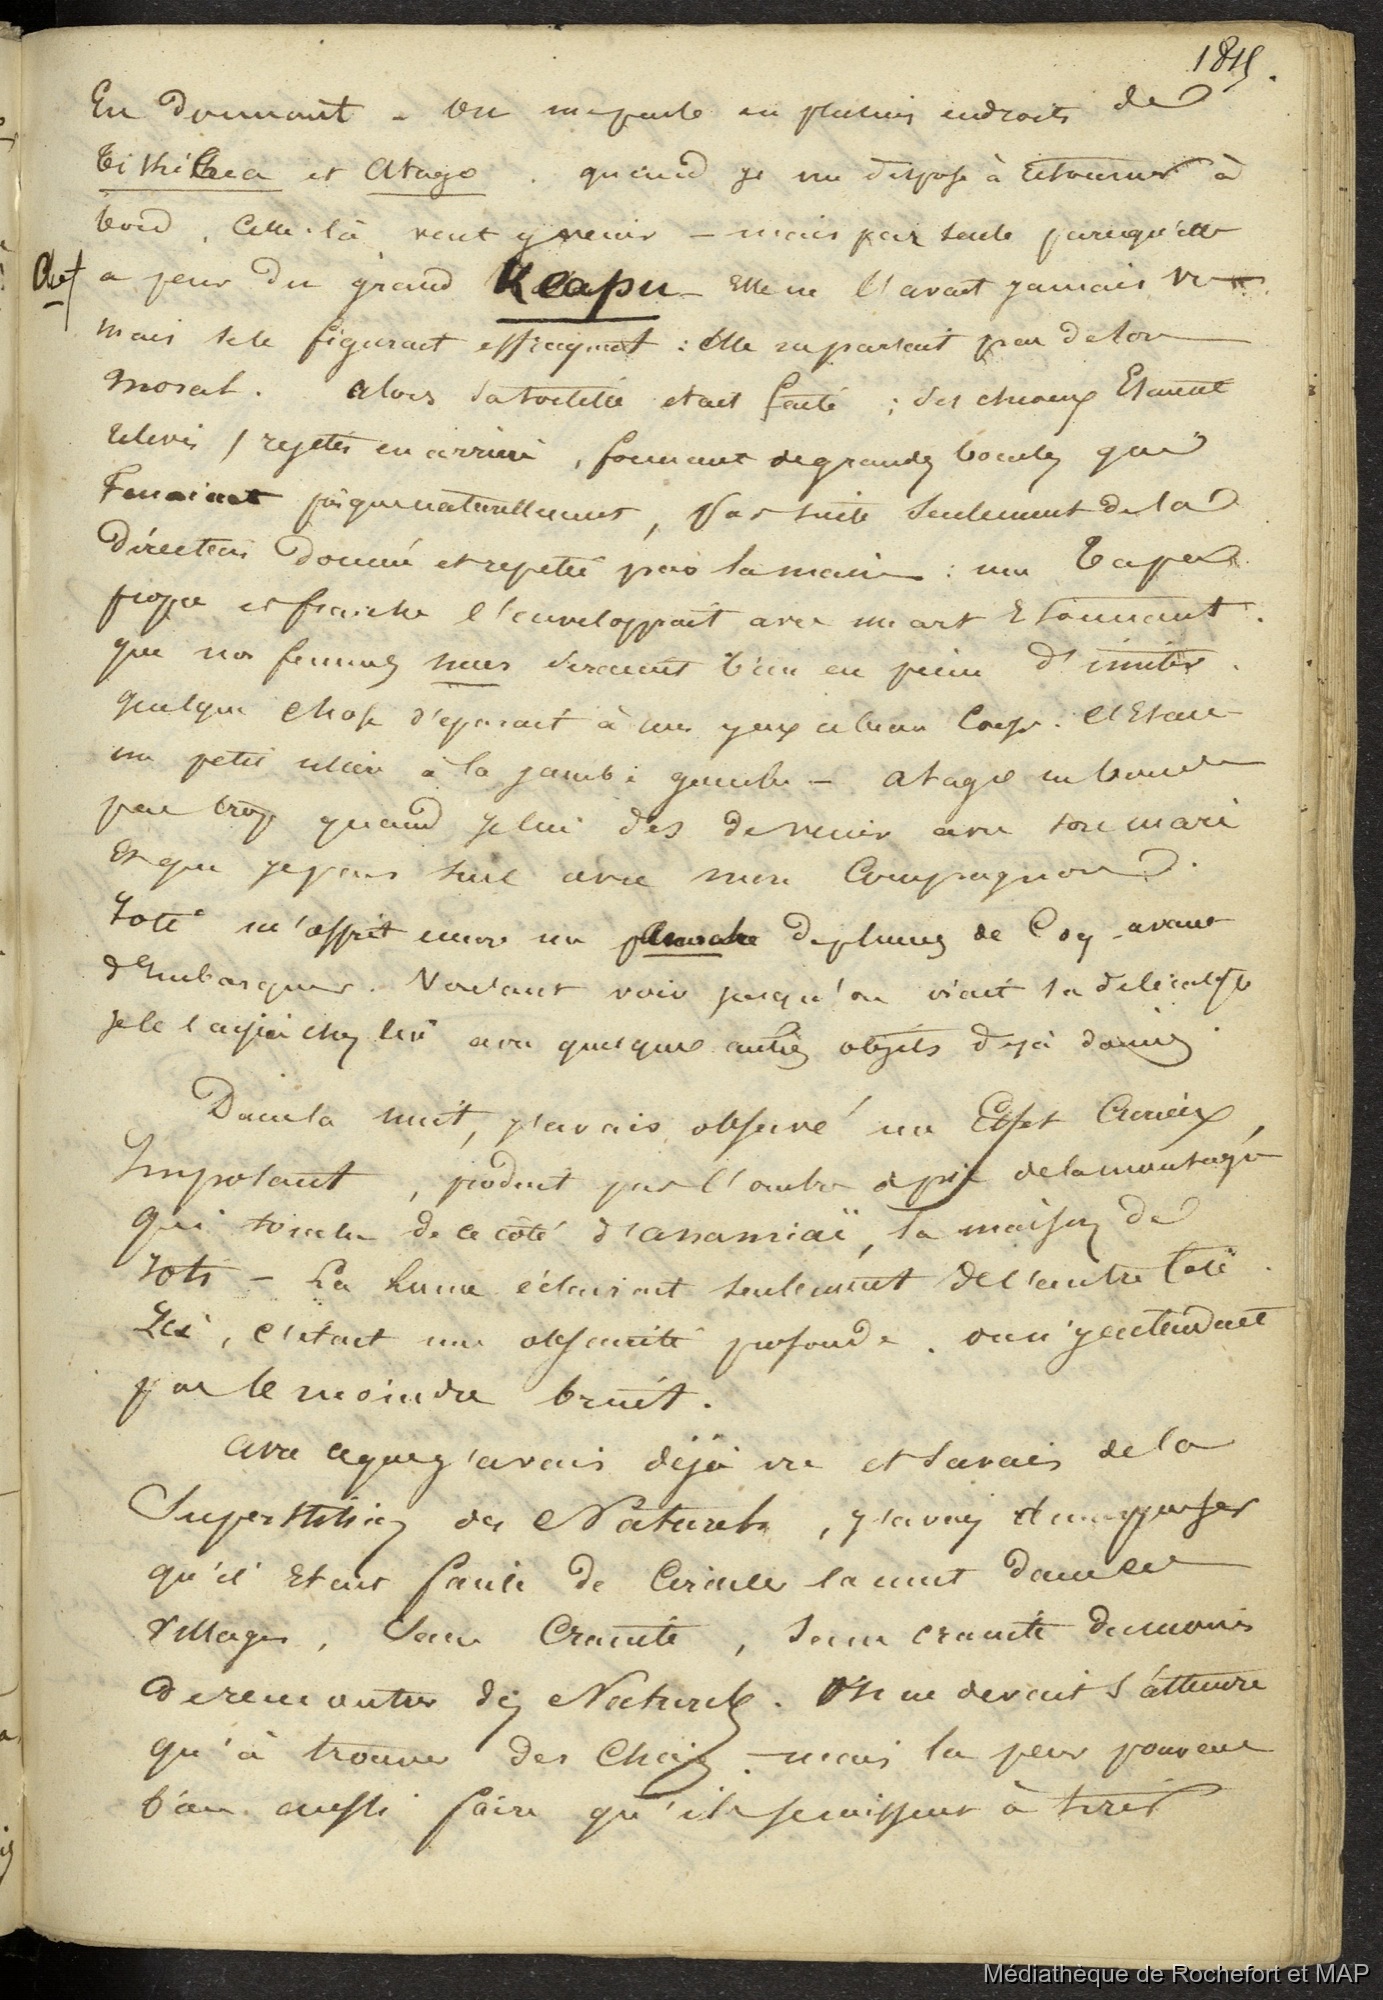 1815.
En donnant - on me parle en plusieurs endroits de
Tithihea et Atago. quand je me dispose à retourner à
bord, Celle-là veut y venir - mais pas seule parcequ'elle
a peur du grand Keapu - Elle ne l'avait jamais vu
mais se le figurait effrayant : Elle me parlait peu de son
moral. alors sa toilette était faite ; ses cheveux Etaient
relevés / rejetés en arrière, formant de grandes boucles qui
Tenaient presque naturellement, par suite seulement de la
direction donnée et repetée par la main : une Tapa
propre et fraiche l'enveloppait avec un art Etonnant.
que nos femmes seraient bien en peine d'imiter.
quelque chose à mes yeux C'Etait
un petit à la jambe gauche - atago me bouda
peu trop quand je lui dis de venir avec son mari
Et que je seul avec mon Compagnon.
Toté m'offrit encore un panache de plumes de Coq avant
d'Embarquer. Voulant voir jusqu'où irait sa delicatesse
je le laissai chez lui avec quelques autres objets déjà donnés.
Dans la nuit, j'avais observé un Effet Curieux,
Imposant, produit par l'ombre de la montagne
qui touche de ce côté d'anamiaï, la maison de
Toté - La Lune éclairant seulement de l'autre Coté.
Ici, c'était une obscurité profonde. on n'y entendait
pas le moindre bruit.
avec ce que j'avais déjà vu et savais de la
Superstition des Naturels, j'avais
qu'il Etait facile de Circuler la nuit dans les
villages, Sans Crainte, Sans crainte du moins
de rencontrer des Naturels. On ne devait s'attendre
qu'à trouver des Chiens - mais la peur pouvait
bien aussi faire qu'ils se missent à tirer
Médiathèque de Rochefort et MAP